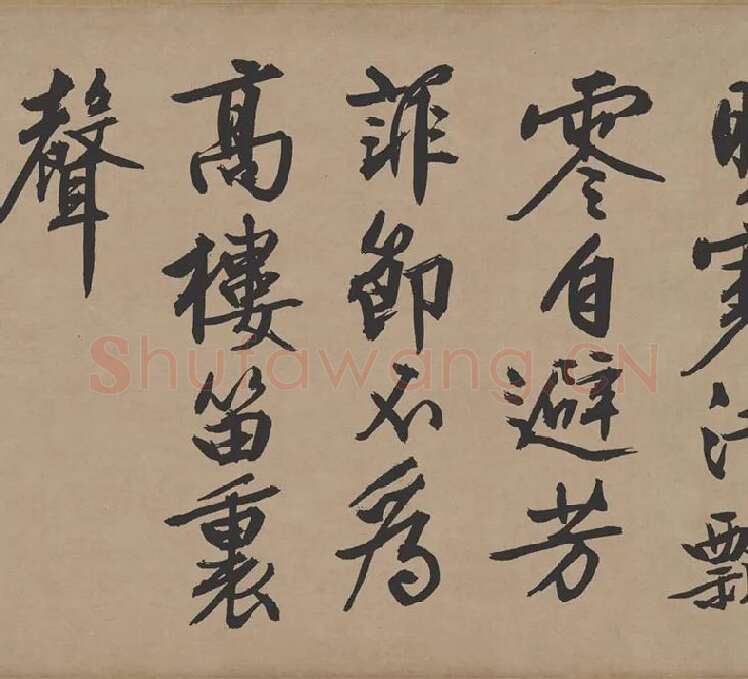 寒江飄
零自避芳
菲節不為
高樓笛裏
聲
Shufawang.CN